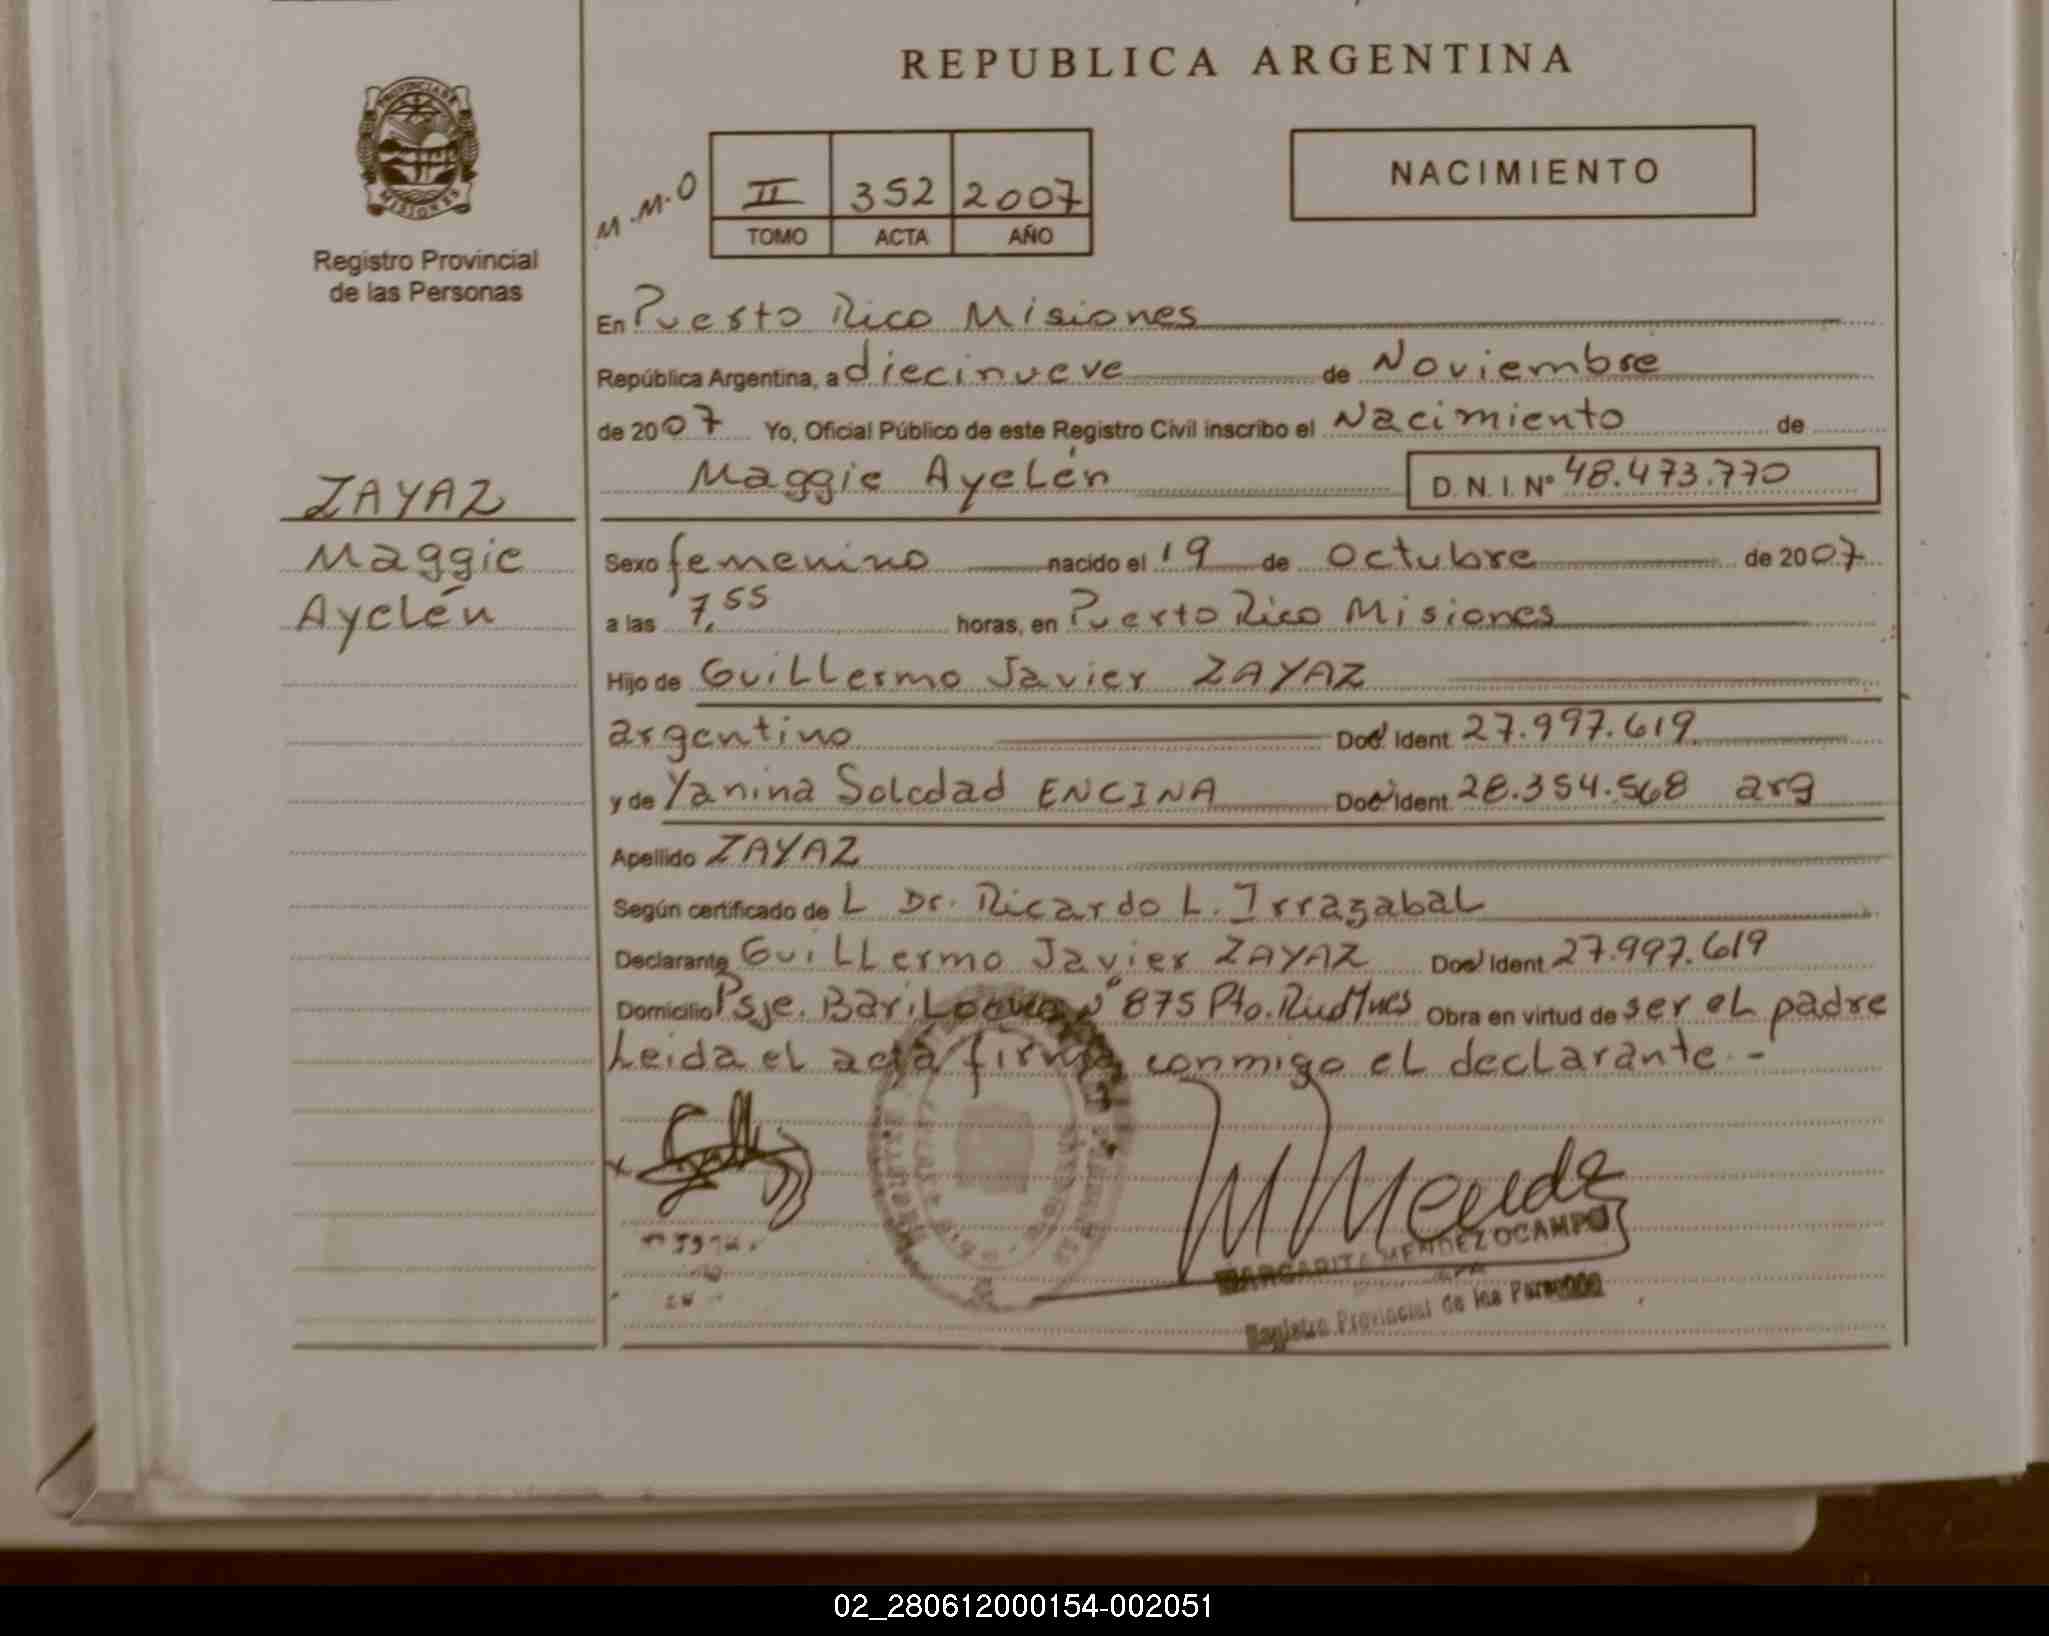 REPUBLICA ARGENTINA
PROVINCIA DE
MISIONES
Registro Provincial
de las Personas
M.M.O
II 352 2007
TOMO ACTA AÑO
NACIMIENTO
En Puerto Rico Misiones
República Argentina, a diecinueve de Noviembre
de 2007 Yo, Oficial Público de este Registro Civil inscribo el Nacimiento de
Maggie Ayelén D.N.I. Nº 48.473.770
ZAYAZ
Maggie
Ayelén
Sexo femenino nacido el 19 de Octubre de 2007
a las 7,55 horas, en Puerto Rico Misiones
Hijo de Guillermo Javier ZAYAZ
argentino Doc. Ident. 27.997.619
y de Yanina Soledad ENCINA Doc. Ident. 28.354.568 arg
Apellido ZAYAZ
Según certificado de L Dr. Ricardo L. Irrazabal
Declarante Guillermo Javier ZAYAZ Doc. Ident. 27.997.619
Domicilio Psje. Bariloche Nº 875 Pto. Rico Mnes Obra en virtud de ser el padre
Leida el acta firma conmigo el declarante.-
MARGARITA MENDEZ OCAMPO
Registro Provincial de las Personas
02_280612000154-002051